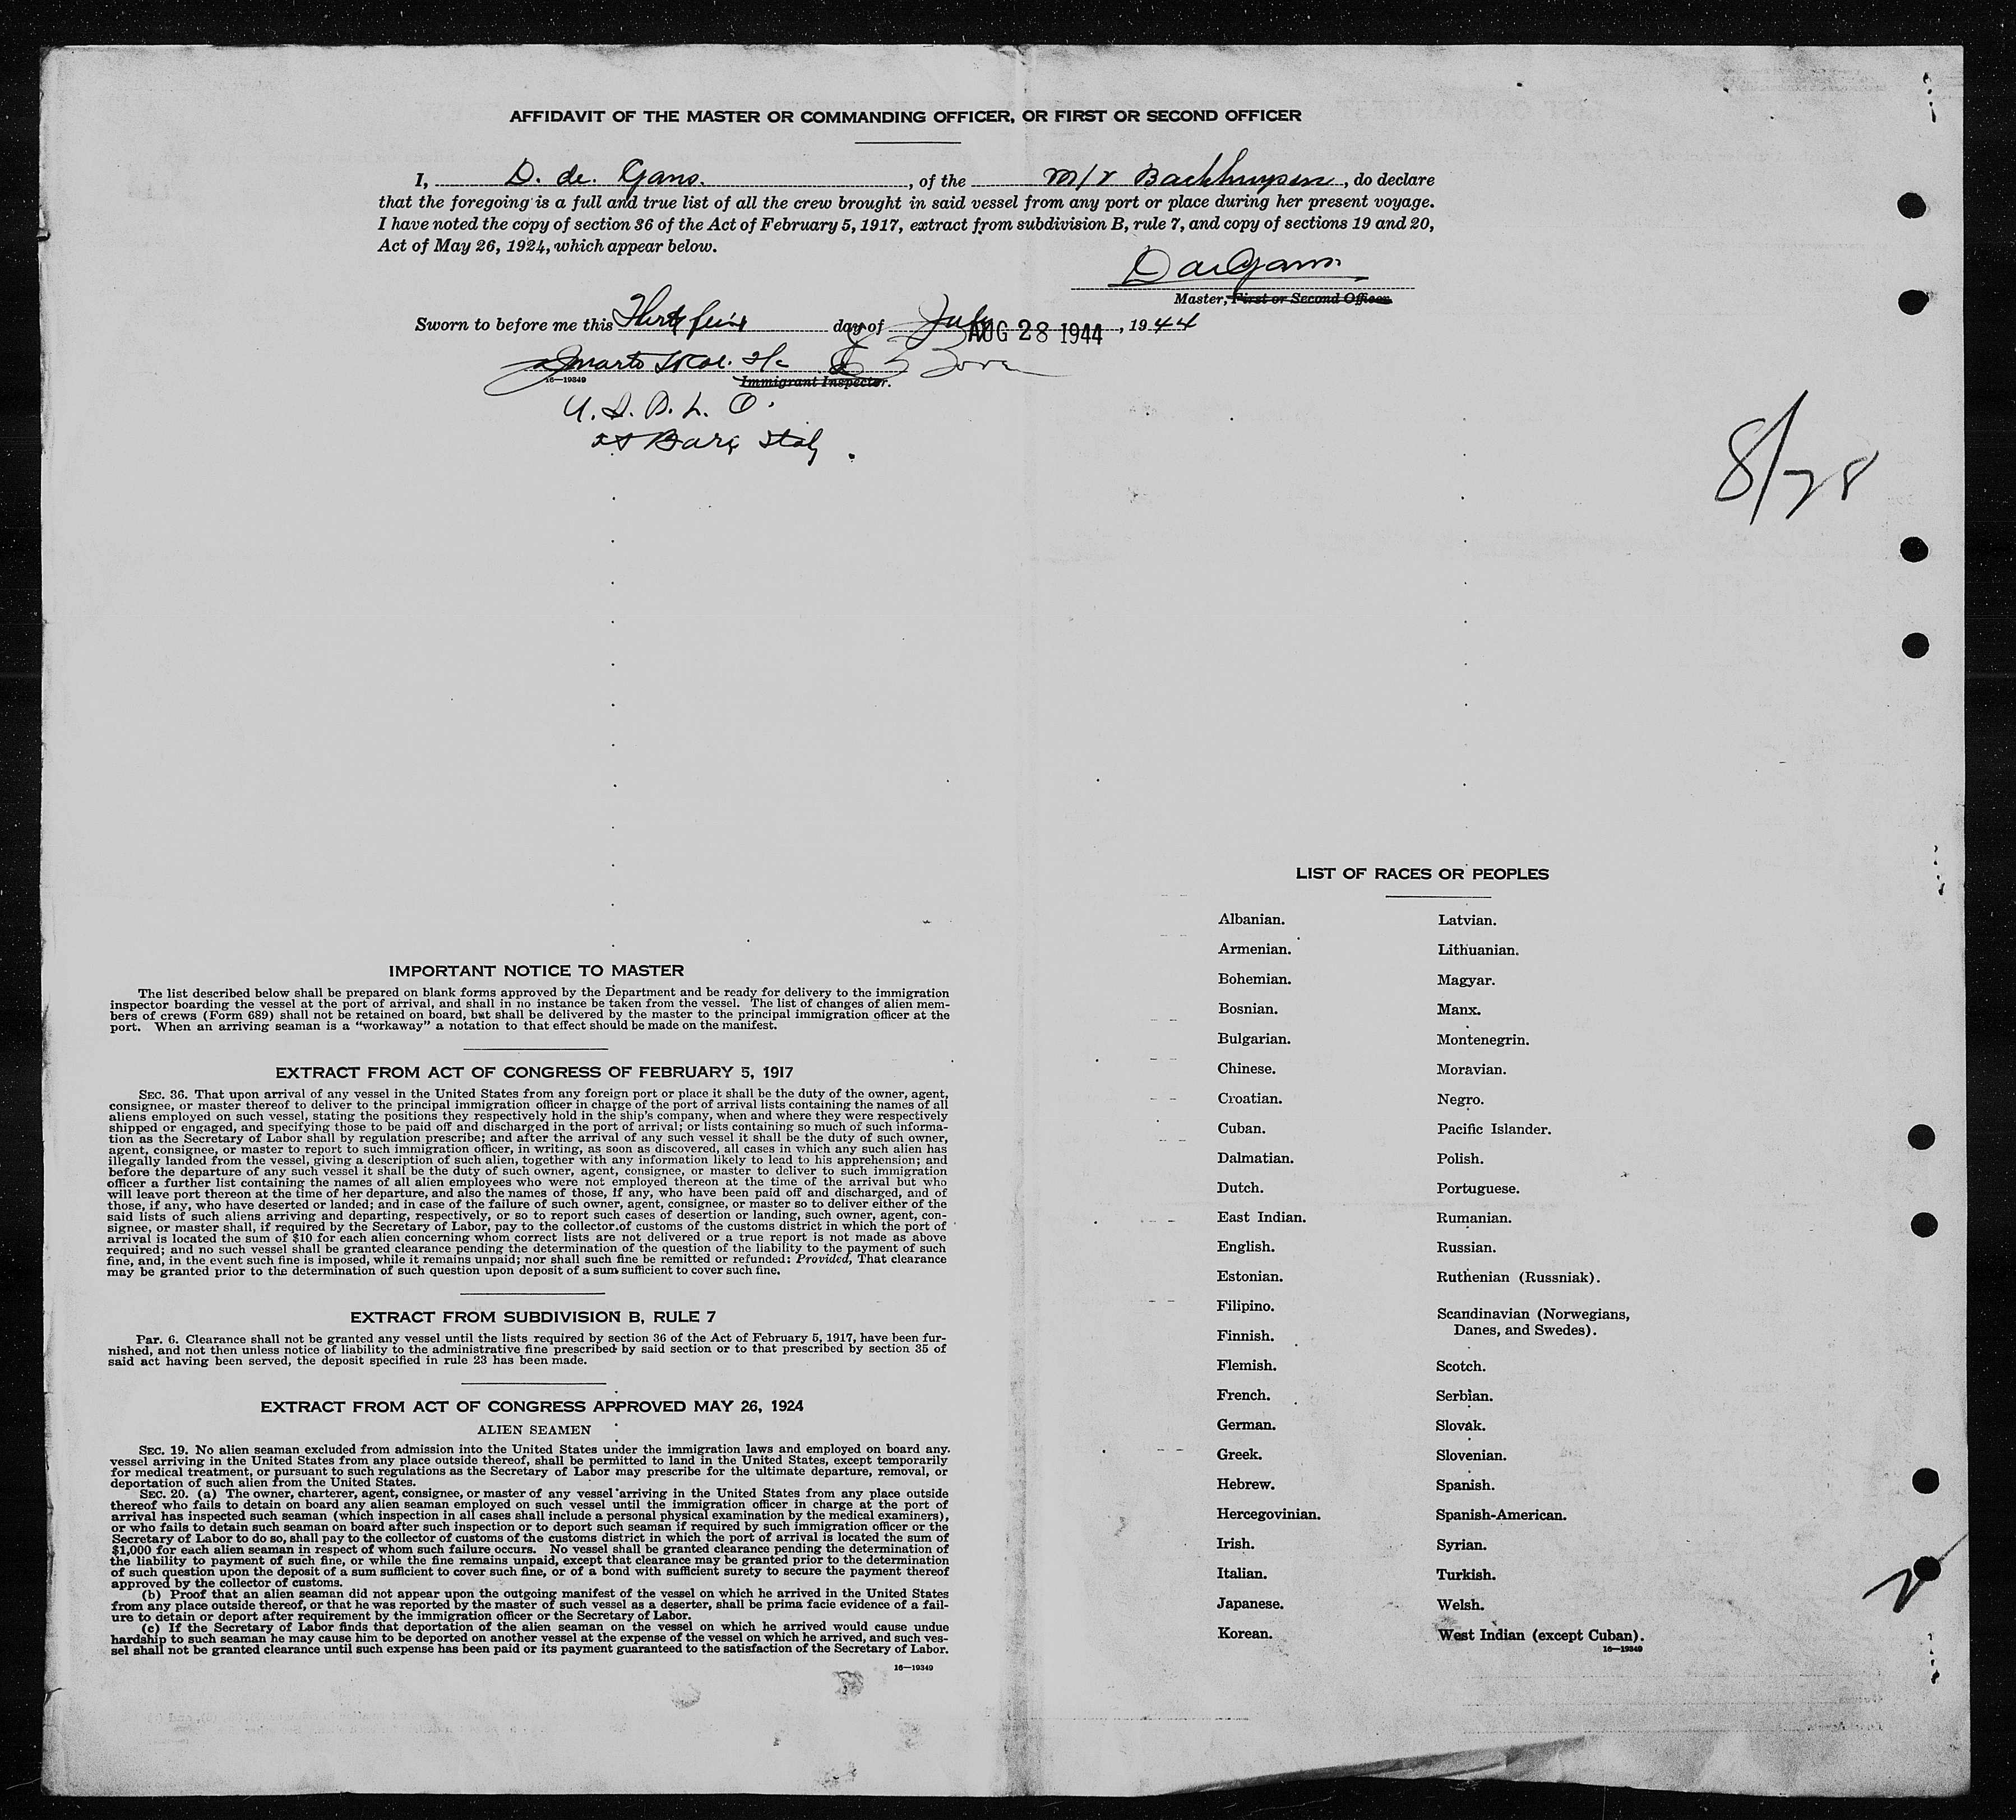 AFFIDAVIT OF THE MASTER OR COMMANDING OFFICER, OR FIRST OR SECOND OFFICER
I, D. de. Gans., of the m/v Backhuysen, do declare
that the foregoing is a full and true list of all the crew brought in said vessel from any port or place during her present voyage.
I have noted the copy of section 36 of the Act of February 5, 1917, extract from subdivision B, rule 7, and copy of sections 19 and 20,
Act of May 26, 1924, which appear below.
D de Gans
Master, First or Second Officer
Sworn to before me this day of July AUG 28 1944, 1944
16—19349
Immigrant Inspector.
at Bari Italy.
8/28
IMPORTANT NOTICE TO MASTER
The list described below shall be prepared on blank forms approved by the Department and be ready for delivery to the immigration
inspector boarding the vessel at the port of arrival, and shall in no instance be taken from the vessel. The list of changes of alien mem-
bers of crews (Form 689) shall not be retained on board, but shall be delivered by the master to the principal immigration officer at the
port. When an arriving seaman is a “workaway” a notation to that effect should be made on the manifest.
EXTRACT FROM ACT OF CONGRESS OF FEBRUARY 5, 1917
SEC. 36. That upon arrival of any vessel in the United States from any foreign port or place it shall be the duty of the owner, agent,
consignee, or master thereof to deliver to the principal immigration officer in charge of the port of arrival lists containing the names of all
aliens employed on such vessel, stating the positions they respectively hold in the ship's company, when and where they were respectively
shipped or engaged, and specifying those to be paid off and discharged in the port of arrival; or lists containing so much of such informa-
tion as the Secretary of Labor shall by regulation prescribe; and after the arrival of any such vessel it shall be the duty of such owner,
agent, consignee, or master to report to such immigration officer, in writing, as soon as discovered, all cases in which any such alien has
illegally landed from the vessel, giving a description of such alien, together with any information likely to lead to his apprehension; and
before the departure of any such vessel it shall be the duty of such owner, agent, consignee, or master to deliver to such immigration
officer a further list containing the names of all alien employees who were not employed thereon at the time of the arrival but who
will leave port thereon at the time of her departure, and also the names of those, if any, who have been paid off and discharged, and of
those, if any, who have deserted or landed; and in case of the failure of such owner, agent, consignee, or master so to deliver either of the
said lists of such aliens arriving and departing, respectively, or so to report such cases of desertion or landing, such owner, agent, con-
signee, or master shall, if required by the Secretary of Labor, pay to the collector of customs of the customs district in which the port of
arrival is located the sum of $10 for each alien concerning whom correct lists are not delivered or a true report is not made as above
required; and no such vessel shall be granted clearance pending the determination of the question of the liability to the payment of such
fine, and, in the event such fine is imposed, while it remains unpaid; nor shall such fine be remitted or refunded: Provided, That clearance
may be granted prior to the determination of such question upon deposit of a sum sufficient to cover such fine.
EXTRACT FROM SUBDIVISION B, RULE 7
Par. 6. Clearance shall not be granted any vessel until the lists required by section 36 of the Act of February 5, 1917, have been fur-
nished, and not then unless notice of liability to the administrative fine prescribed by said section or to that prescribed by section 35 of
said act having been served, the deposit specified in rule 23 has been made.
EXTRACT FROM ACT OF CONGRESS APPROVED MAY 26, 1924
ALIEN SEAMEN
SEC. 19. No alien seaman excluded from admission into the United States under the immigration laws and employed on board any
vessel arriving in the United States from any place outside thereof, shall be permitted to land in the United States, except temporarily
for medical treatment, or pursuant to such regulations as the Secretary of Labor may prescribe for the ultimate departure, removal, or
deportation of such alien from the United States.
SEC. 20. (a) The owner, charterer, agent, consignee, or master of any vessel arriving in the United States from any place outside
thereof who fails to detain on board any alien seaman employed on such vessel until the immigration officer in charge at the port of
arrival has inspected such seaman (which inspection in all cases shall include a personal physical examination by the medical examiners),
or who fails to detain such seaman on board after such inspection or to deport such seaman if required by such immigration officer or the
Secretary of Labor to do so, shall pay to the collector of customs of the customs district in which the port of arrival is located the sum of
$1,000 for each alien seaman in respect of whom such failure occurs. No vessel shall be granted clearance pending the determination of
the liability to payment of such fine, or while the fine remains unpaid, except that clearance may be granted prior to the determination
of such question upon the deposit of a sum sufficient to cover such fine, or of a bond with sufficient surety to secure the payment thereof
approved by the collector of customs.
(b) Proof that an alien seaman did not appear upon the outgoing manifest of the vessel on which he arrived in the United States
from any place outside thereof, or that he was reported by the master of such vessel as a deserter, shall be prima facie evidence of a fail-
ure to detain or deport after requirement by the immigration officer or the Secretary of Labor.
(c) If the Secretary of Labor finds that deportation of the alien seaman on the vessel on which he arrived would cause undue
hardship to such seaman he may cause him to be deported on another vessel at the expense of the vessel on which he arrived, and such ves-
sel shall not be granted clearance until such expense has been paid or its payment guaranteed to the satisfaction of the Secretary of Labor.
16—19349
LIST OF RACES OR PEOPLES
Albanian.
Armenian.
Bohemian.
Bosnian.
Bulgarian.
Chinese.
Croatian.
Cuban.
Dalmatian.
Dutch.
East Indian.
English.
Estonian.
Filipino.
Finnish.
Flemish.
French.
German.
Greek.
Hebrew.
Hercegovinian.
Irish.
Italian.
Japanese.
Korean.
Latvian.
Lithuanian.
Magyar.
Manx.
Montenegrin.
Moravian.
Negro.
Pacific Islander.
Polish.
Portuguese.
Rumanian.
Russian.
Ruthenian (Russniak).
Scandinavian (Norwegians,
Danes, and Swedes).
Scotch.
Serbian.
Slovak.
Slovenian.
Spanish.
Spanish-American.
Syrian.
Turkish.
Welsh.
West Indian (except Cuban).
16—19349